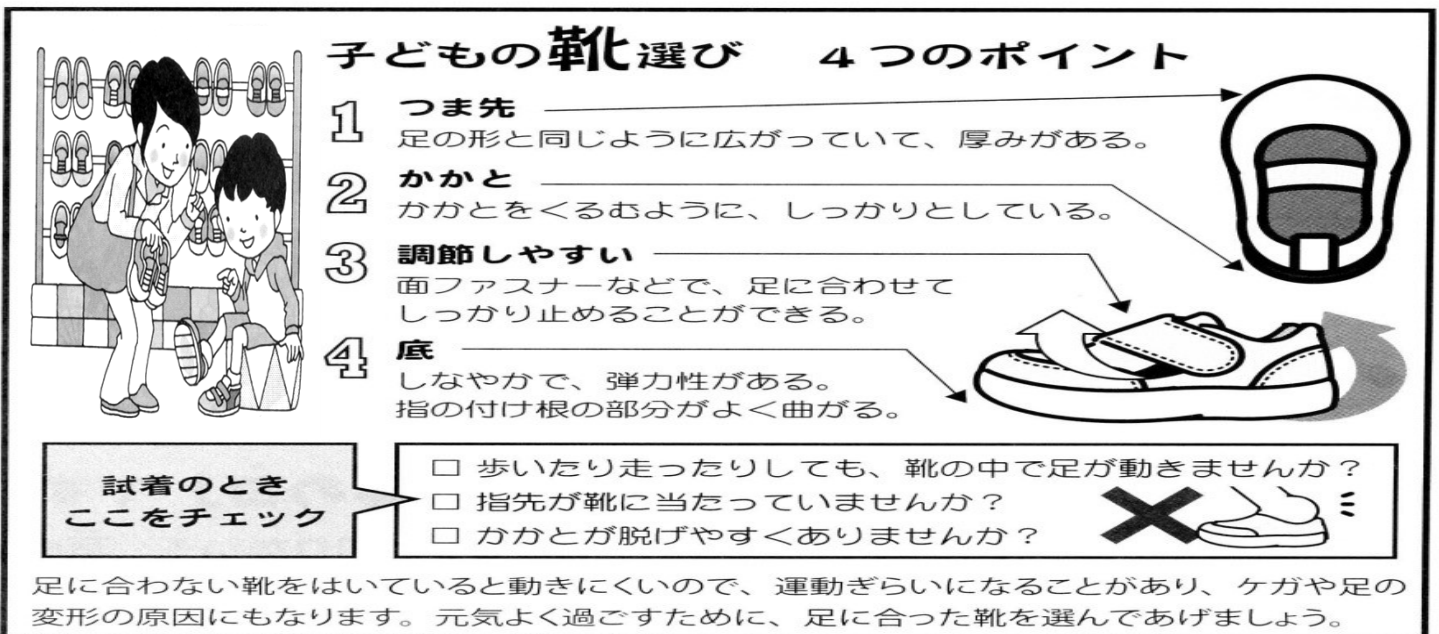 子どもの靴選び 4つのポイント
1 つま先
足の形と同じように広がっていて、厚みがある。
2 かかと
かかとをくるむように、しっかりとしている。
3 調節しやすい
面ファスナーなどで、足に合わせて
しっかり止めることができる。
4 底
しなやかで、弾力性がある。
指の付け根の部分がよく曲がる。
試着のとき
ここをチェック
□ 歩いたり走ったりしても、靴の中で足が動きませんか？
□ 指先が靴に当たっていませんか？
□ かかとが脱げやすくありませんか？
足に合わない靴をはいていると動きにくいので、運動ぎらいになることがあり、ケガや足の
変形の原因にもなります。元気よく過ごすために、足に合った靴を選んであげましょう。